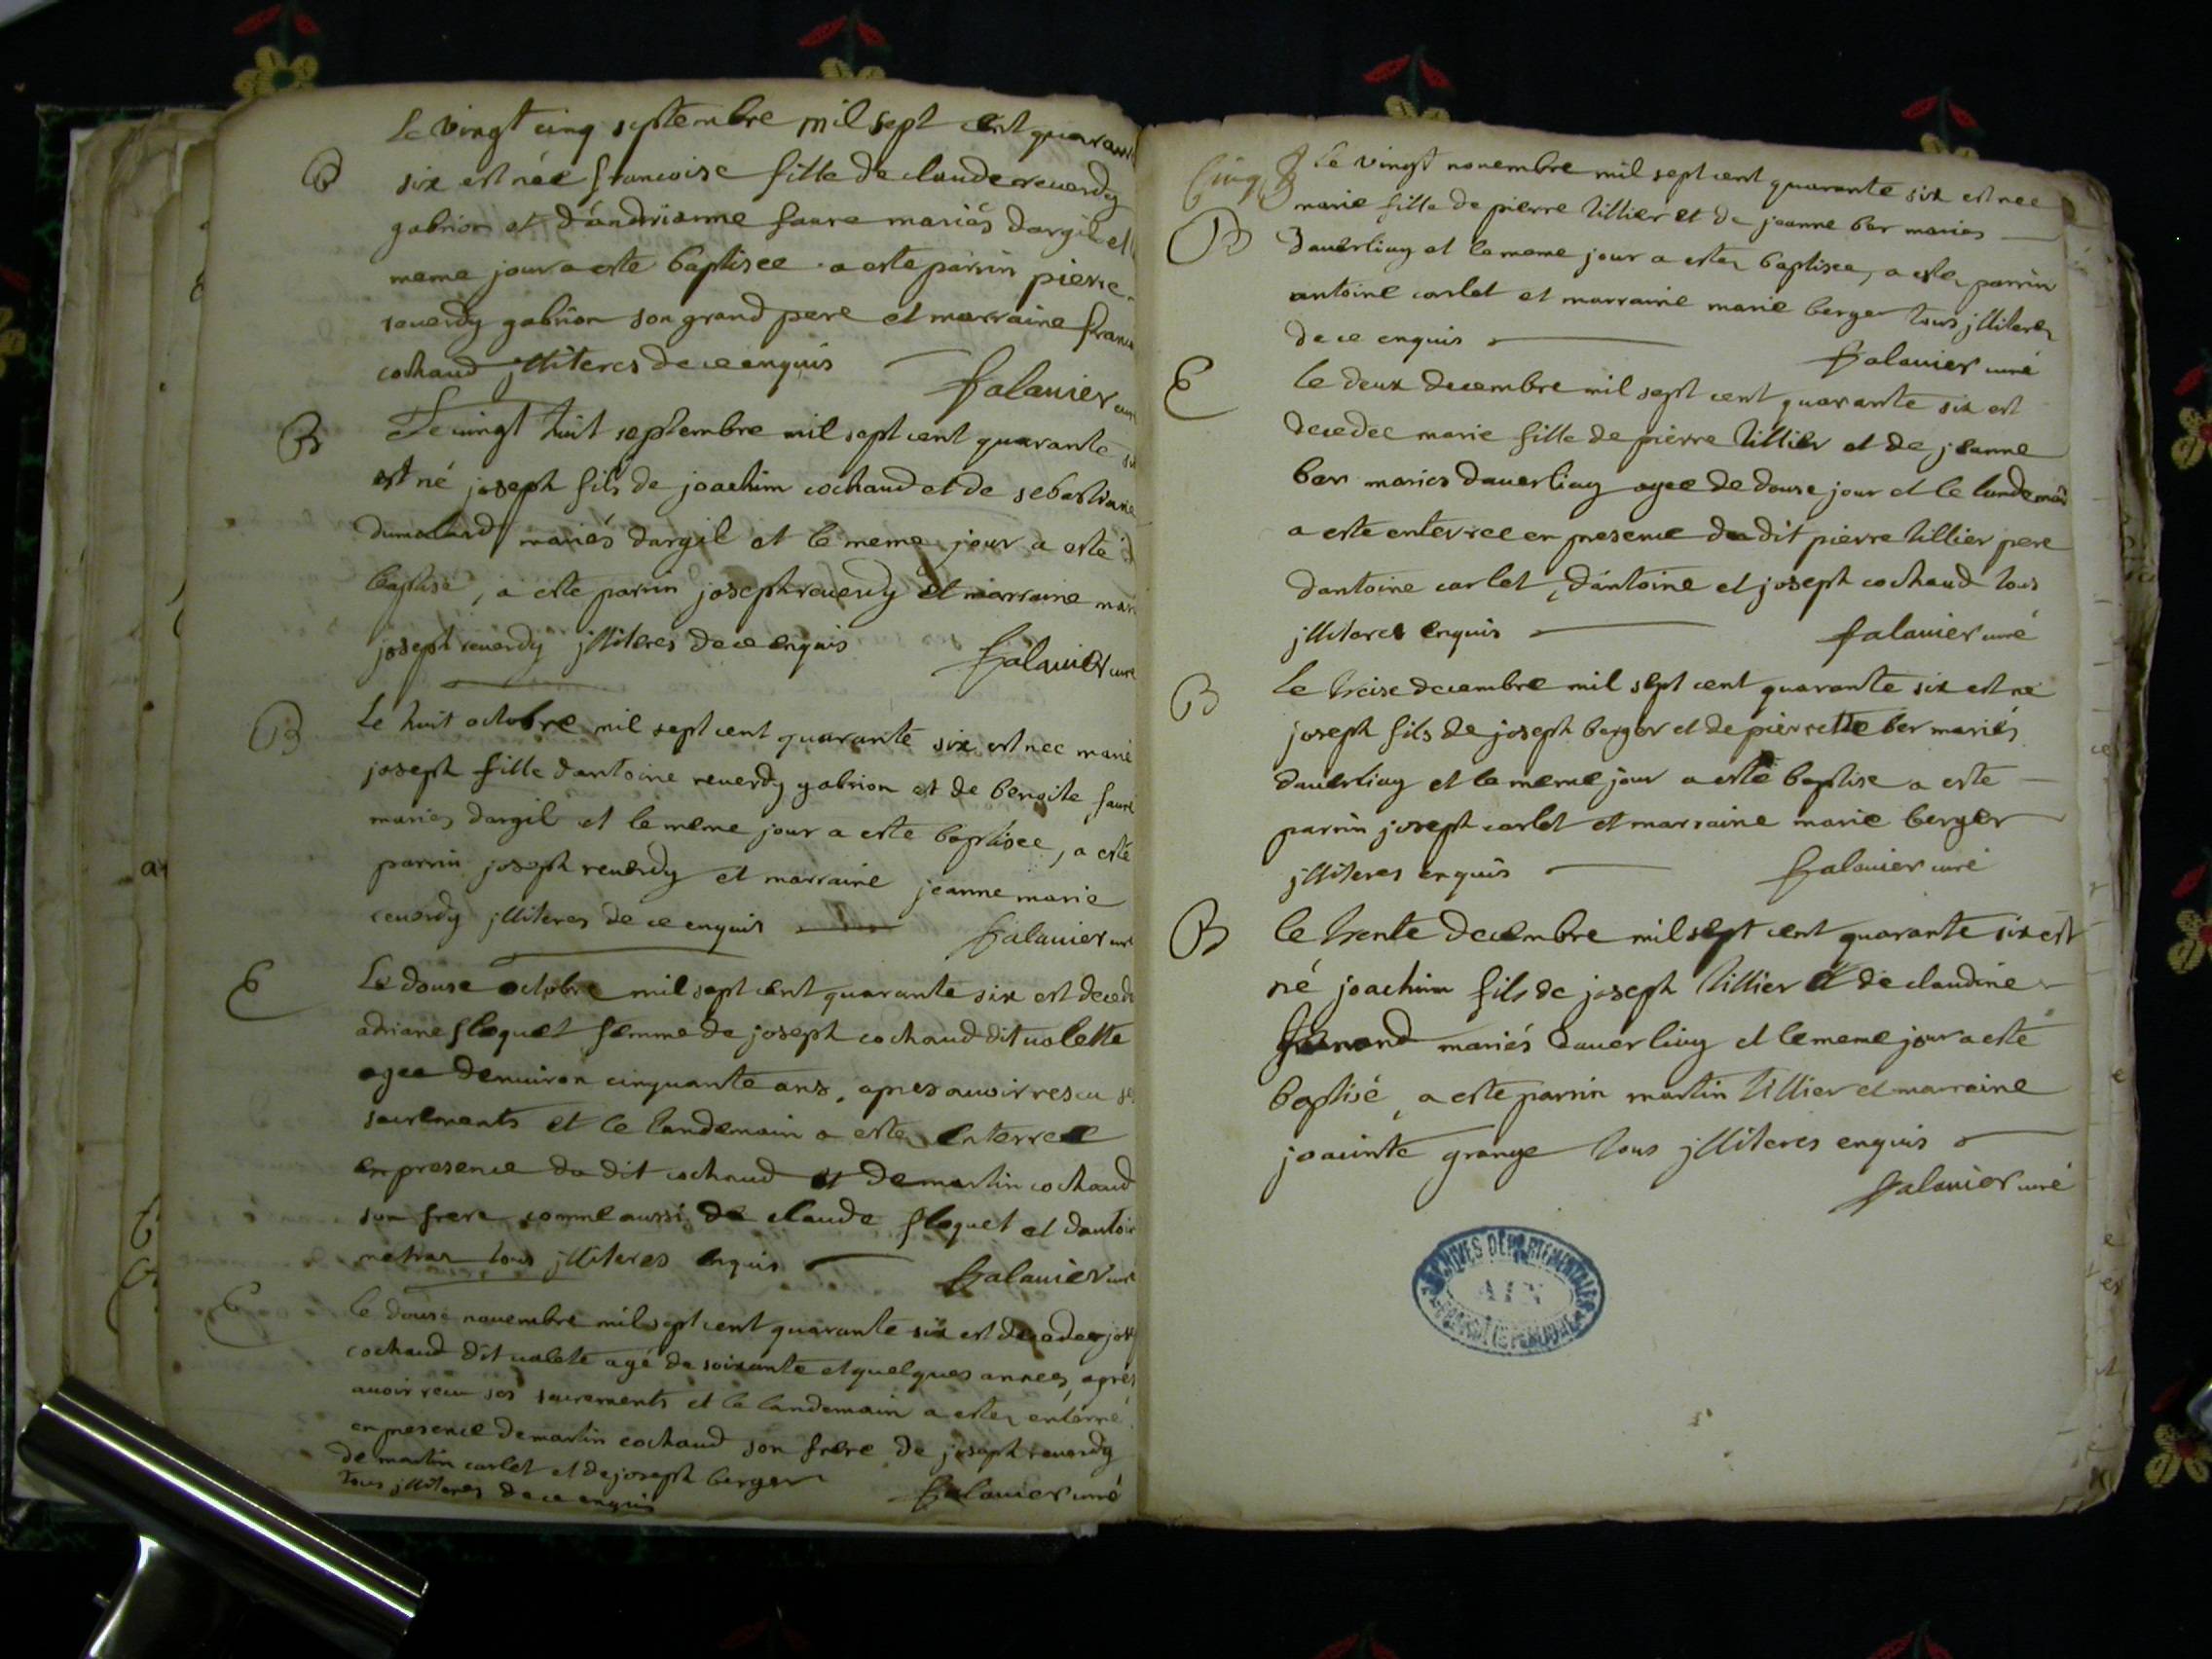 Le vingt cinq septembre mil sept cent quarant
B six est née francoise fille de claude reuerdy
gabrion et d'andrianne faure mariés dargil et
meme jour a esté baptisee a esté parrin pierre
reuerdy gabrion son grand pere et marraine franc
cochaud jlliteres de ce enquis
falauier curé
B Le uingt huit septembre mil sept cent quarante six
est né joseph fils de joachim cochaud et de sebastiane
dumolard mariés dargil et le meme jour a esté
baptisé, a esté parrin joseph reuerdy et marraine mari
joseph reuerdy jlliteres de ce enquis
falauier curé
B Le huit octobre mil sept cent quarante six est nee marie
joseph fille dantoine reuerdy gabrion et de benoite faure
maries dargil et le meme jour a esté baptisee, a esté
parrin joseph reuerdy et marraine jeanne marie
reuerdy jlliteres de ce enquis
falauier curé
E Le douse octobre mil sept cent quarante six est decede
adriane floquet femme de joseph cochaud dit uolette
agee denuiron cinquante ans, apres auoir rescu ses
sacrements et le landemain a estez enterree
en presence du dit cochaud et de martin cochaud
son frere comme aussi de claude floquet et dantoin
metras tous jlliteres enquis
falauier curé
E le douse nouembre mil sept cent quarante six est decedee jose
cochaud dit ualete agé de soixante et quelques annees, aprés
auoir recu ses sacrements et le landemain a estez enterré
en presence de martin cochaud son frere de joseph reuerdy
de martin carlet et de joseph berger
tous jlliteres de ce enquis
falauier curé
Cinq
le vingt nouembre mil sept cent quarante six est nee
marie fille de pierre tillier et de jeanne ber maries
B dauerliay et le meme jour a estez baptisee, a estez parrin
antoine carlet et marraine marie berger tous jlliterez
de ce enquis
falauier curé
E le deux decembre mil sept cent quarante six est
decedee marie fille de pierre tillier et de jeanne
ber maries dauerliay agee de douse jour et le landemain
a esté enterree en presence du dit pierre tillier pere
dantoine carlet, d'antoine et joseph cochaud tous
jlliteres enquis
falauier curé
B Le treise decembre mil sept cent quarante six est né
joseph fils de joseph berger et de pierrette ber mariés
dauerliay et le meme jour a esté baptisé a esté
parrin joseph carlet et marraine marie berger
jlliteres enquis
falauier curé
B le trente decembre mil sept cent quarante six est
né joachim fils de joseph tillier et de claudine
mariés dauerliay et le meme jour a esté
baptisé, a esté parrin martin tillier et marraine
joacinte grange tous jlliteres enquis
falauier curé
ARCHIVES DÉPARTEMENTALES
AIN